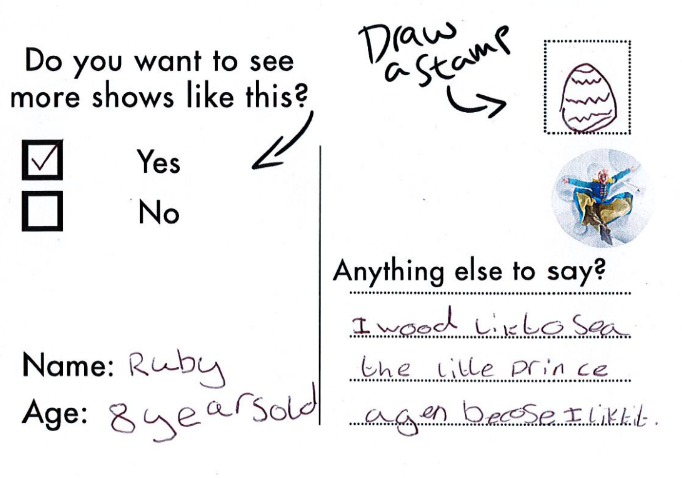 Do you want to see
more shows like this?
Yes
No
Name: Ruby
Age: 8 years old
Draw
a Stamp
Anything else to say?
I wood lik to Sea
the litle prince
agen becose I lik it.